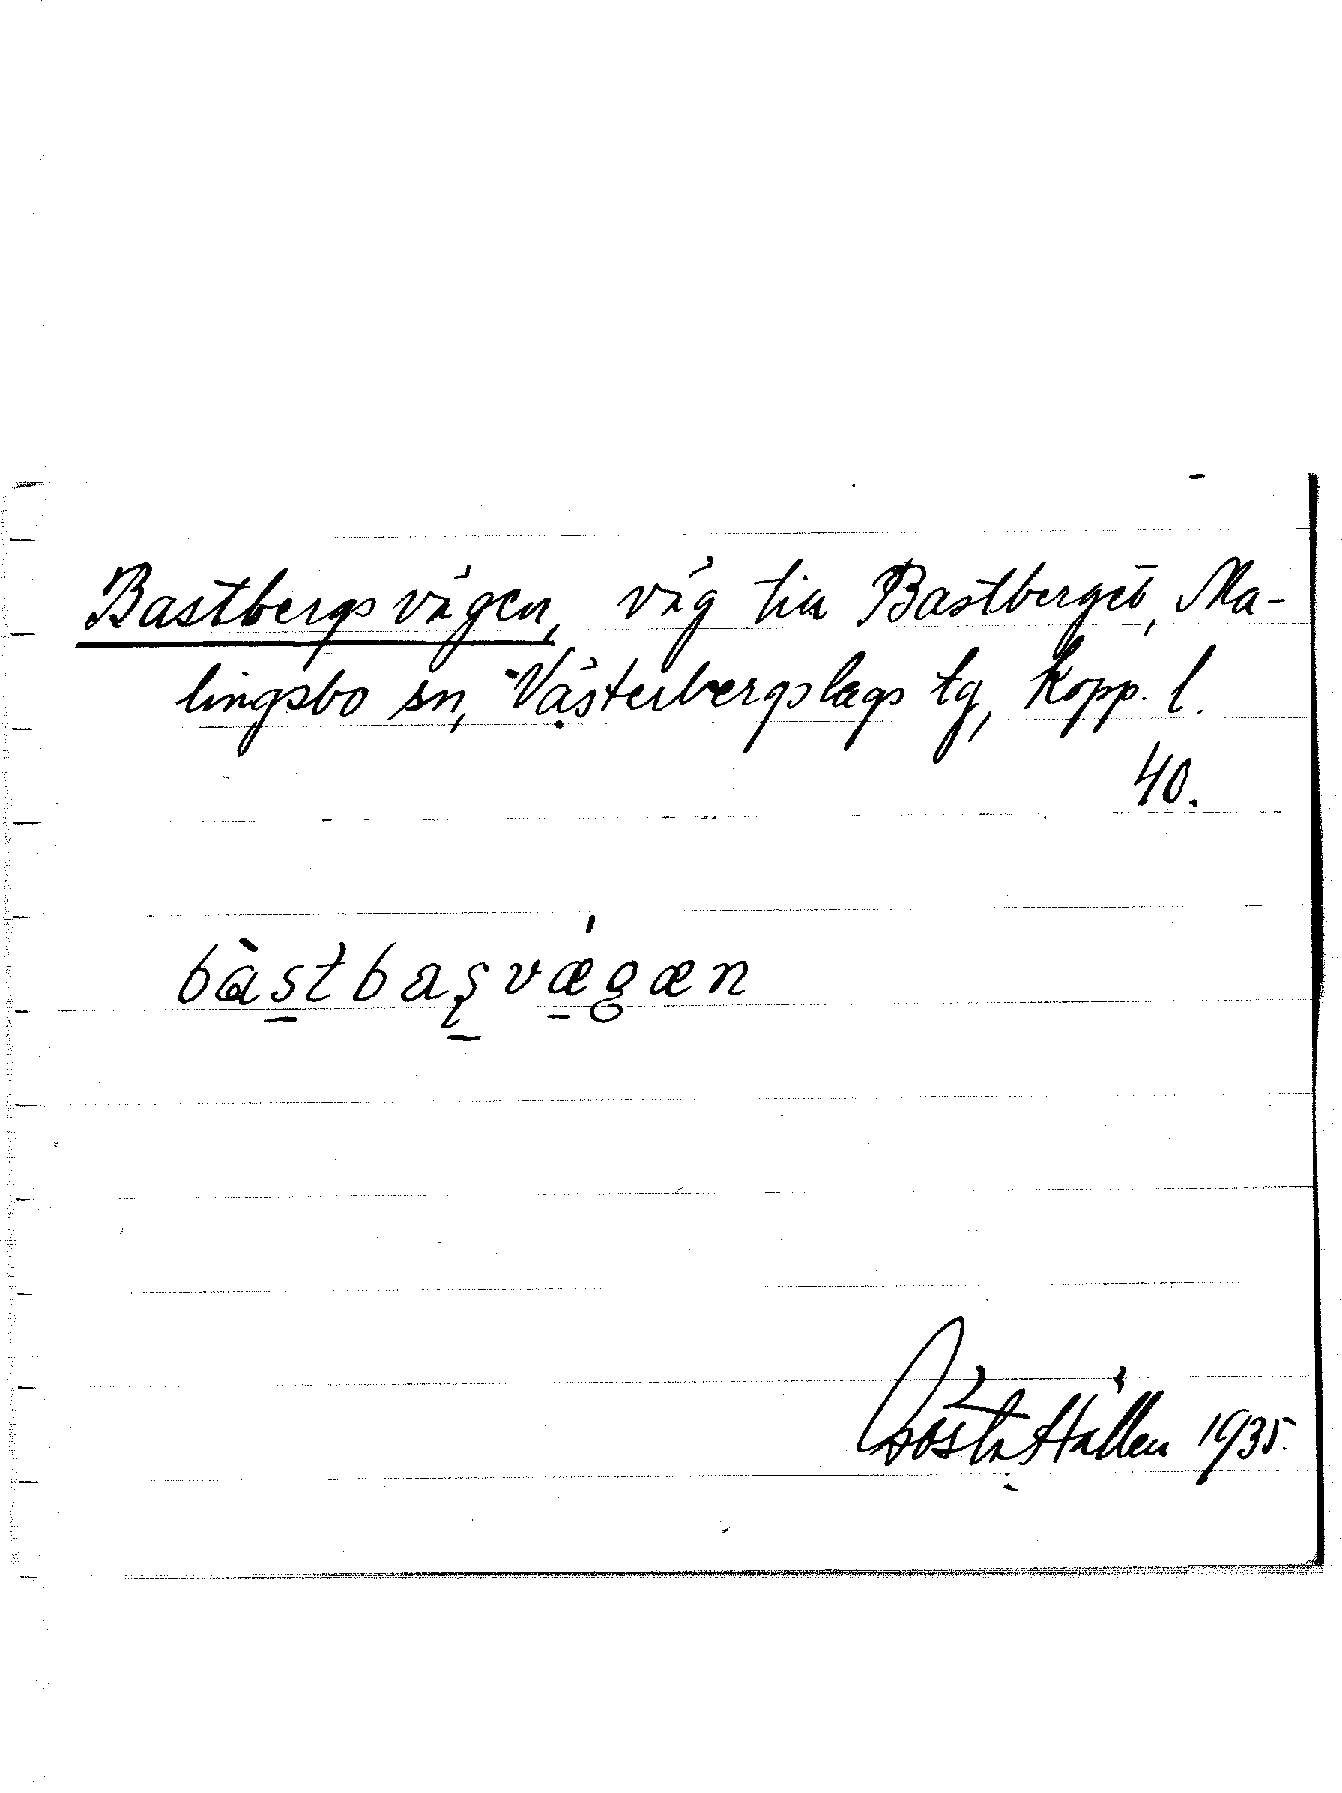 Bastbergsvägen, väg till Bastberget, Ma-
lingsbo sn, Västerbergslags tg, Kopp. l.
40.
bàstbaṣvǽgæn
Gösta Hallen 1935.